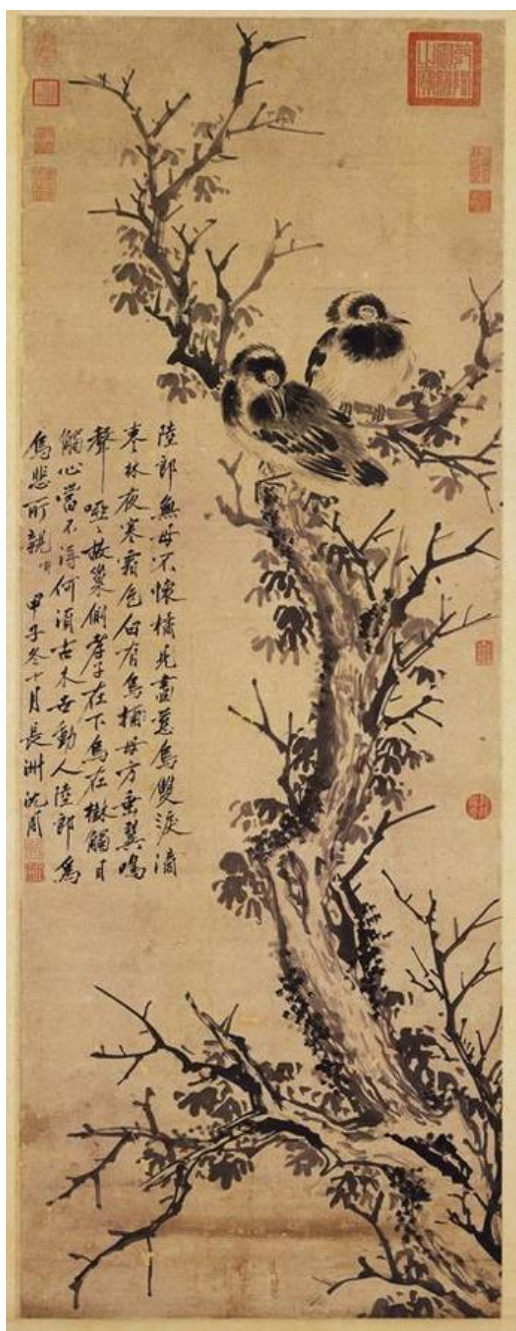 陸郎無母不懷橘見畫慈烏雙淚滴
寒林夜寒霜色白有烏哺母方垂翼鳴
聲啞〻故巢側孝子在下烏在樹觸目
觸心當不得何須古木世動人陸郎為
烏悲所親甲子冬十月長洲沈周
乾隆御覽之寶